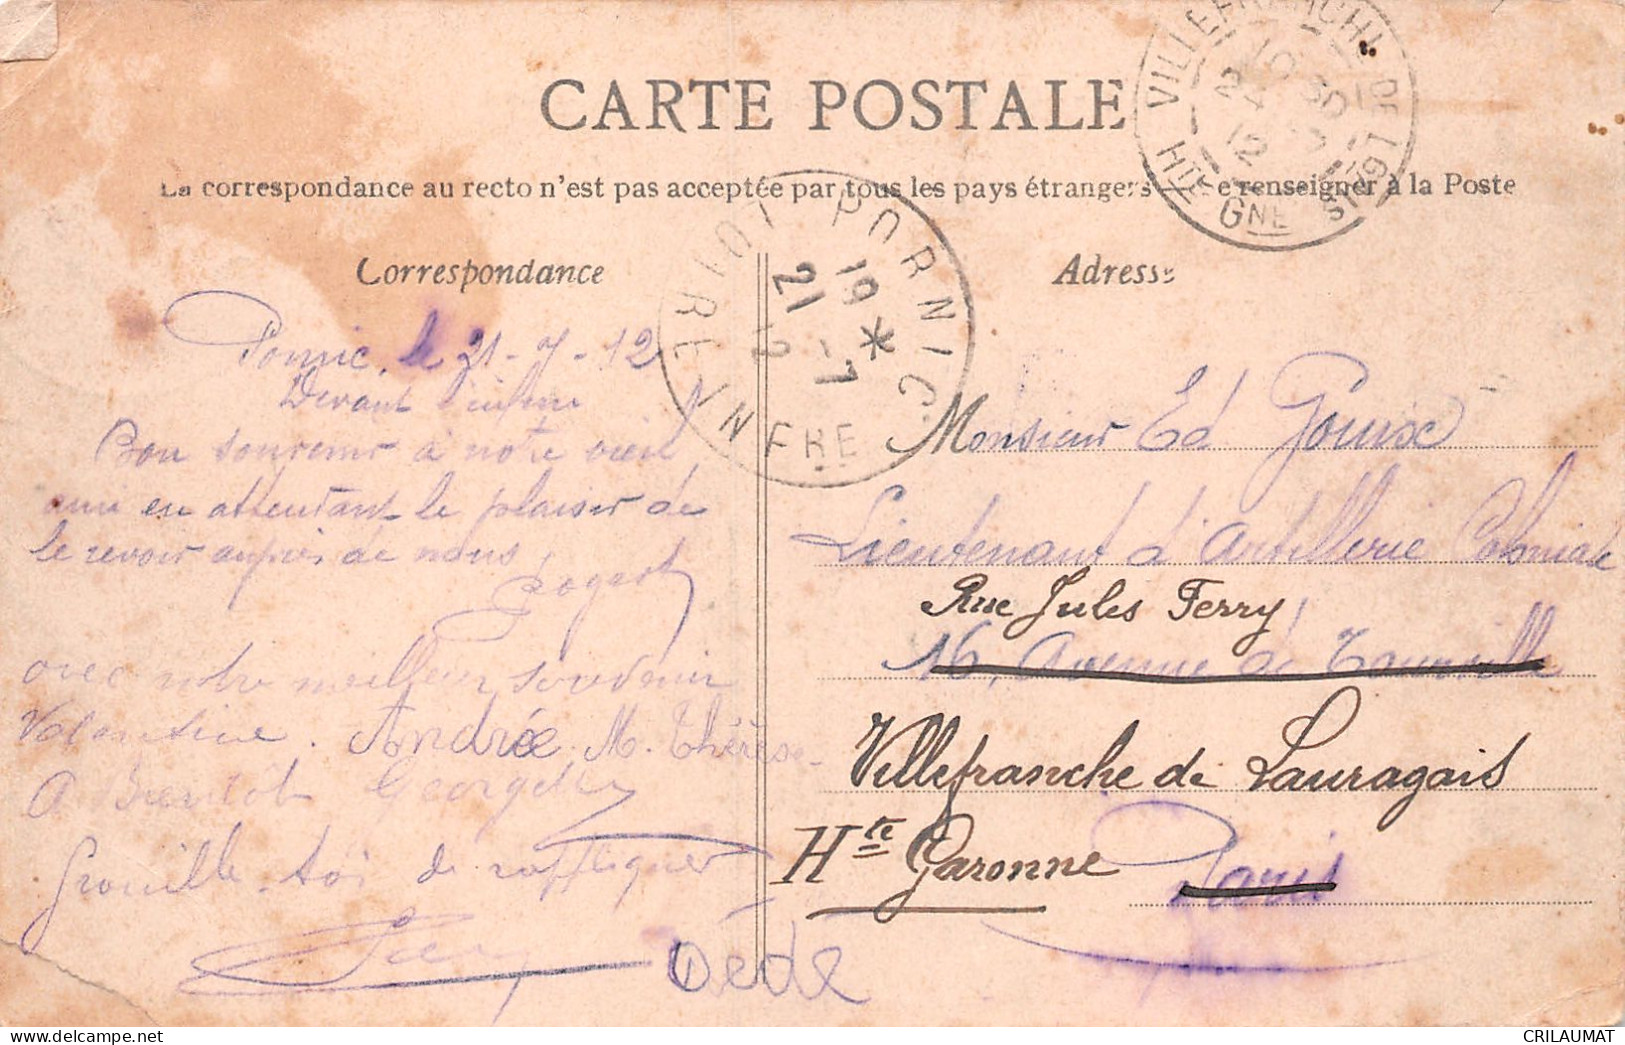 CARTE POSTALE
La correspondance au recto n'est pas acceptée par tous les pays étrangers e renseigner à la Poste
Correspondance
Pornic, le 21-7-12
Devant
Bon souvenir à notre vieil
ami en attendant le plaisir de
le revoir auprès de nous
avec notre meilleur souvenir
Valentine. Andrée. M. Thérèse
A Bientôt Georgette
Grouille-toi de rappliquer
Dédé
Adresse
Monsieur Ed Gouix
Lieutenant d'Artillerie Coloniale
Rue Jules Ferry
16, Avenue de Tourville
Villefranche de Lauragais
Hte Garonne
Paris
PORNIC
19 *
21 -7
12
LOIRE INFRE
VILLEFRANCHE DE LAIS
HTE GNE
CRILAUMAT